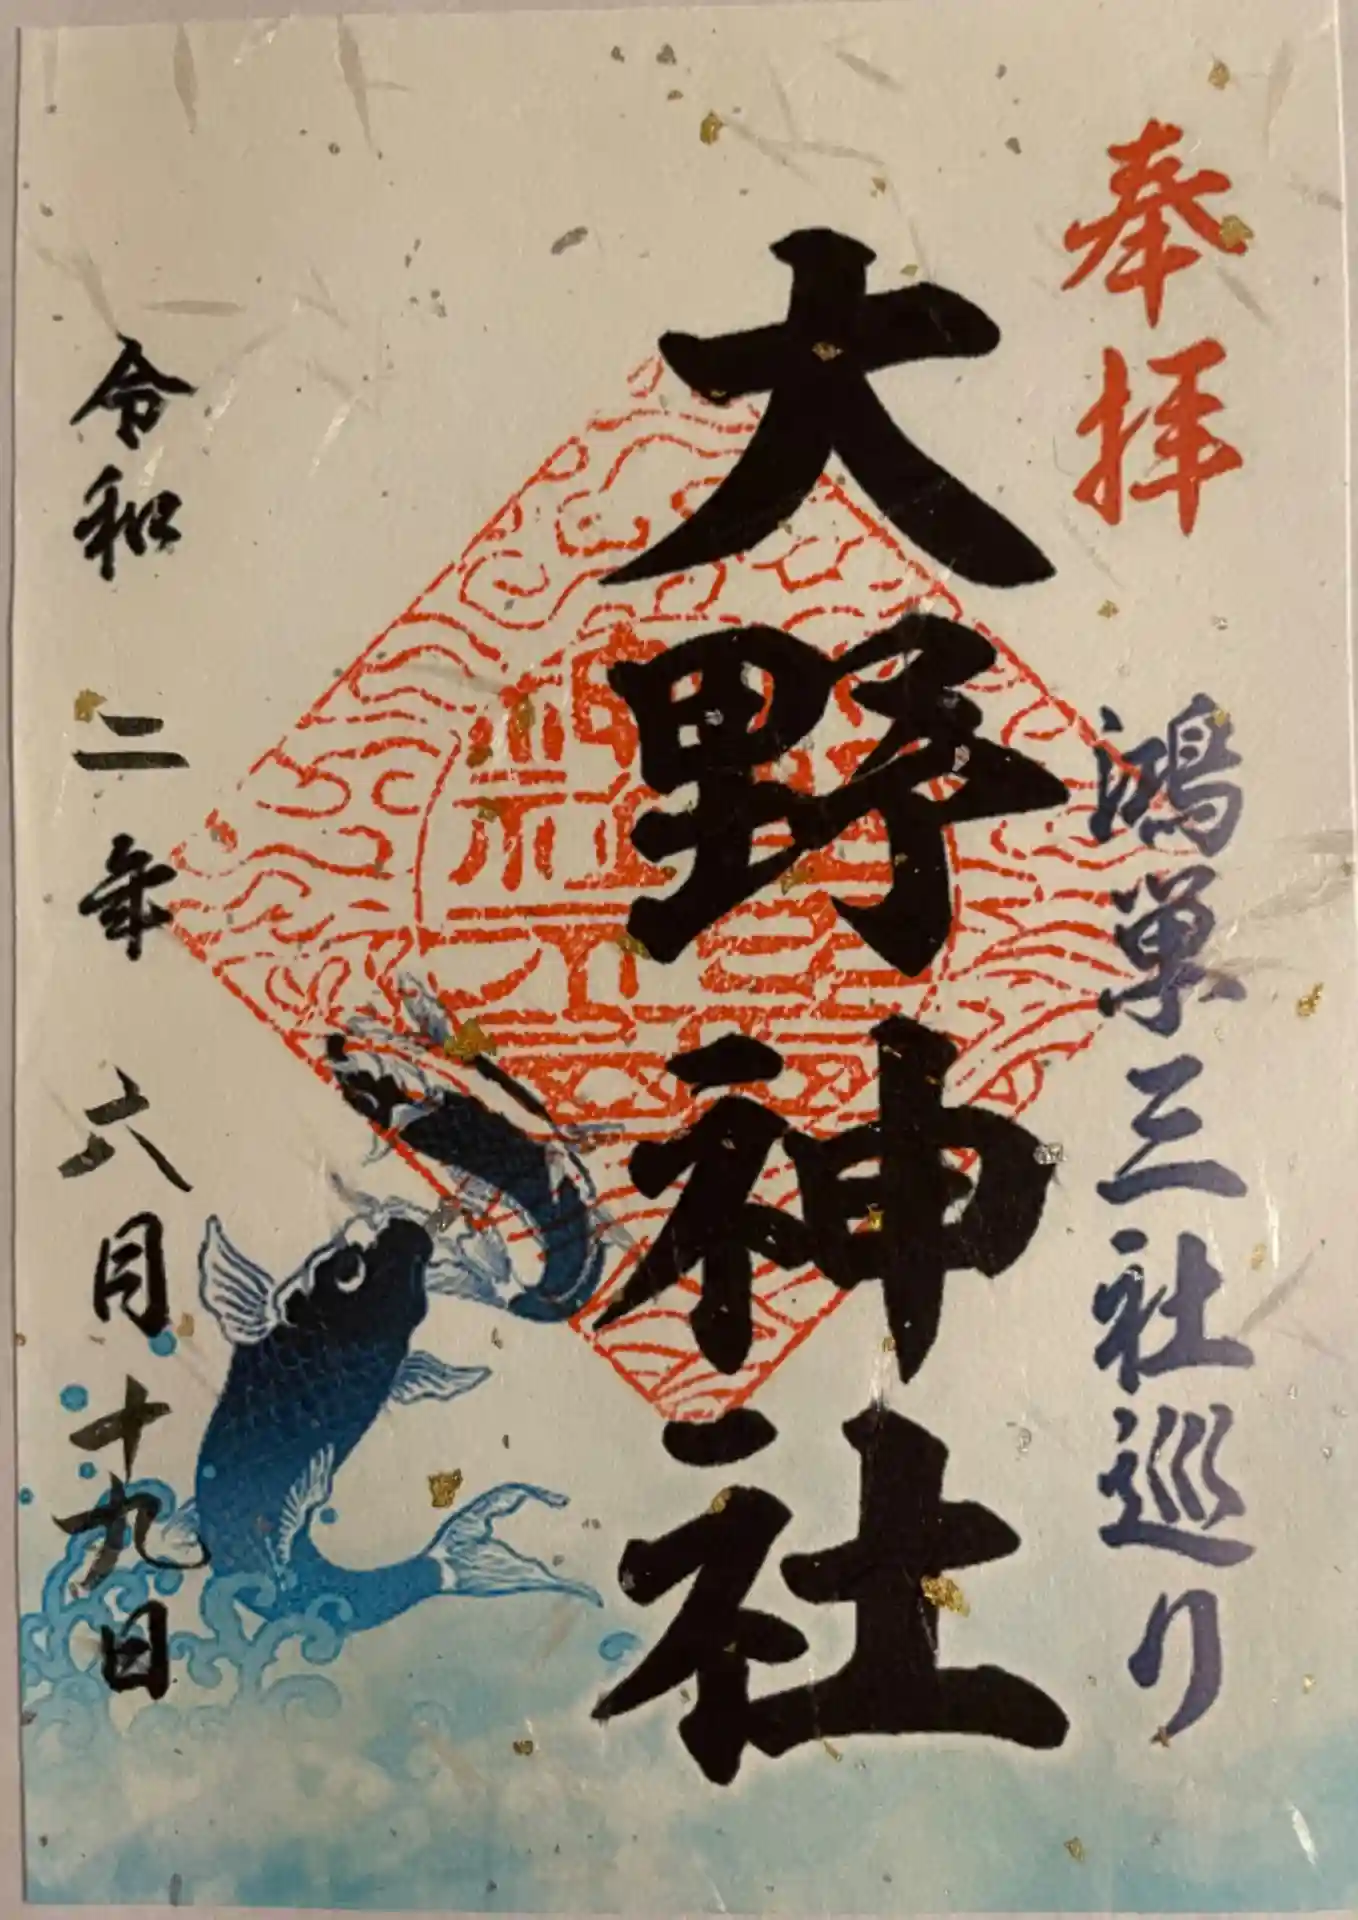 奉拝
鴻巣三社巡り
大野神社
令和二年六月十九日